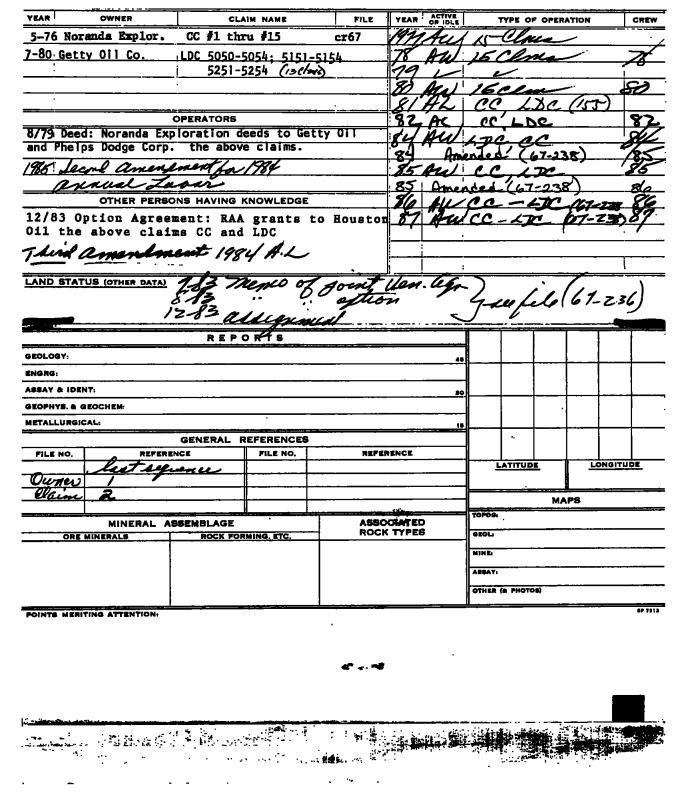 YEAR OWNER CLAIM NAME FILE YEAR ACTIVE OR IDLE TYPE OF OPERATION CREW
5-76 Noranda Explor. CC #1 thru #15 cr67
7-80 Getty Oil Co. LDC 5050-5054; 5151-5154
5251-5254 (13 claims)
1977 AW 15 Clms
78 AW 15 Clms 78
79 ✓ ✓
80 AW 15 Clm 80
81 AL CC, LDC (155)
OPERATORS
82 AC CC, LDC 82
8/79 Deed: Noranda Exploration deeds to Getty Oil
and Phelps Dodge Corp. the above claims.
84 AW LDC, CC 84
84 Amended (67-238) 85
1985 Second Amendment for 1984
Annual Labor
85 AW CC, LDC 85
85 Amended (67-238) 86
OTHER PERSONS HAVING KNOWLEDGE
86 AW CC - LDC (67-238) 86
12/83 Option Agreement: RAA grants to Houston
Oil the above claims CC and LDC
87 AW CC - LDC (67-238) 87
Third Amendment 1984 A.L
LAND STATUS (OTHER DATA) 7-83 Memo of Joint Ven. Agr.
8-83 " " option
12-83 assignment
} see file (67-236)
REPORTS
GEOLOGY: 45
ENGRG:
ASSAY & IDENT: 30
GEOPHYS. & GEOCHEM:
METALLURGICAL: 15
GENERAL REFERENCES
FILE NO. REFERENCE FILE NO. REFERENCE
last sequence
Owner 1
Claim 2
LATITUDE LONGITUDE
MAPS
TOPOG:
GEOL:
MINE:
ASSAY:
OTHER (& PHOTOS)
MINERAL ASSEMBLAGE ASSOCIATED ROCK TYPES
ORE MINERALS ROCK FORMING, ETC.
POINTS MERITING ATTENTION:
SP 7313